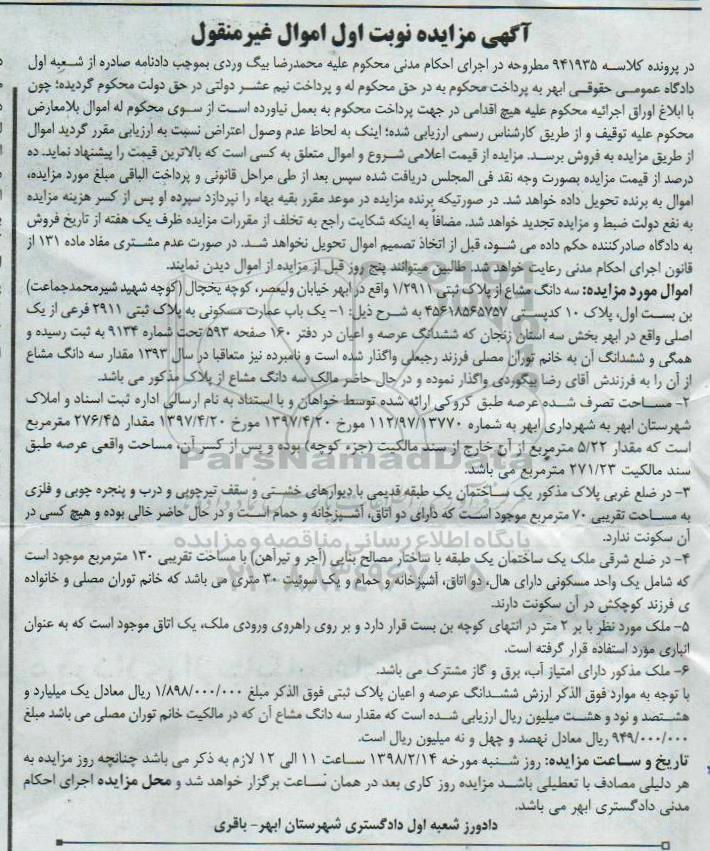 آگهی مزایده نوبت اول اموال غیرمنقول
در پرونده کلاسه ۹۴۱۹۳۵ مطروحه در اجرای احکام مدنی محکوم علیه محمدرضا بیگ وردی بموجب دادنامه صادره از شعبه اول
دادگاه عمومی حقوقی ابهر به پرداخت محکوم به در حق محکوم له و پرداخت نیم عشر دولتی در حق دولت محکوم گردیده؛ چون
با ابلاغ اوراق اجرائیه محکوم علیه هیچ اقدامی در جهت پرداخت محکوم به بعمل نیاورده است از سوی محکوم له اموال بلامعارض
محکوم علیه توقیف و از طریق کارشناس رسمی ارزیابی شده؛ اینک به لحاظ عدم وصول اعتراض نسبت به ارزیابی مقرر گردید اموال
از طریق مزایده به فروش برسد. مزایده از قیمت اعلامی شروع و اموال متعلق به کسی است که بالاترین قیمت را پیشنهاد نماید. ده
درصد از قیمت مزایده بصورت وجه نقد فی المجلس دریافت شده سپس بعد از طی مراحل قانونی و پرداخت الباقی مبلغ مورد مزایده،
اموال به برنده تحویل داده خواهد شد. در صورتیکه برنده مزایده در موعد مقرر بقیه بهاء را نپردازد سپرده او پس از کسر هزینه مزایده
به نفع دولت ضبط و مزایده تجدید خواهد شد. مضافاً به اینکه شکایت راجع به تخلف از مقررات مزایده ظرف یک هفته از تاریخ فروش
به دادگاه صادرکننده حکم داده می شود، قبل از اتخاذ تصمیم اموال تحویل نخواهد شد. در صورت عدم مشتری مفاد ماده ۱۳۱ از
قانون اجرای احکام مدنی رعایت خواهد شد. طالبین میتوانند پنج روز قبل از مزایده از اموال دیدن نمایند.
اموال مورد مزایده: سه دانگ مشاع از پلاک ثبتی ۱/۲۹۱۱ واقع در ابهر خیابان ولیعصر، کوچه یخچال (کوچه شهید شیرمحمدجماعت)
بن بست اول، پلاک ۱۰ کدپستی ۴۵۶۱۸۵۶۵۷۵۷ به شرح ذیل: ۱- یک باب عمارت مسکونی به پلاک ثبتی ۲۹۱۱ فرعی از یک
اصلی واقع در ابهر بخش سه استان زنجان که ششدانگ عرصه و اعیان در دفتر ۱۶۰ صفحه ۵۹۳ تحت شماره ۹۱۳۴ به ثبت رسیده و
همگی و ششدانگ آن به خانم توران مصلی فرزند رجبعلی واگذار شده است و نامبرده نیز متعاقبا در سال ۱۳۹۳ مقدار سه دانگ مشاع
از آن را به فرزندش آقای رضا بیگوردی واگذار نموده و در حال حاضر مالک سه دانگ مشاع از پلاک مذکور می باشد.
۲- مساحت تصرف شده عرصه طبق کروکی ارائه شده توسط خواهان و با استناد به نام ارسالی اداره ثبت اسناد و املاک
شهرستان ابهر به شهرداری ابهر به شماره ۱۱۲/۹۷/۱۳۷۷۰ مورخ ۱۳۹۷/۴/۲۰ مورخ ۱۳۹۷/۴/۲۰ مقدار ۲۷۶/۴۵ مقرمربع
است که مقدار ۵/۲۲ مترمربع از آن خارج از سند مالکیت (جزء کوچه) بوده و پس از کسر آن، مساحت واقعی عرصه طبق
سند مالکیت ۲۷۱/۲۳ مترمربع می باشد.
۳- در ضلع غربی پلاک مذکور یک ساختمان یک طبقه قدیمی با دیوارهای خشتی و سقف تیرچوبی و درب و پنجره چوبی و فلزی
به مساحت تقریبی ۷۰ مترمربع موجود است که دارای دو اتاق، آشپزخانه و حمام است و در حال حاضر خالی بوده و هیچ کسی در
آن سکونت ندارد.
۴- در ضلع شرقی ملک یک ساختمان یک طبقه با ساختار مصالح بنایی (آجر و تیرآهن) با مساحت تقریبی ۱۳۰ مترمربع موجود است
که شامل یک واحد مسکونی دارای هال، دو اتاق، آشپزخانه و حمام و یک سوئیت ۳۰ متری می باشد که خانم توران مصلی و خانواده
ی فرزند کوچکش در آن سکونت دارند.
۵- ملک مورد نظر با بر ۲ متر در انتهای کوچه بن بست قرار دارد و بر روی راهروی ورودی ملک، یک اتاق موجود است که به عنوان
انباری مورد استفاده قرار گرفته است.
۶- ملک مذکور دارای امتیاز آب، برق و گاز مشترک می باشد.
با توجه به موارد فوق الذکر ارزش ششدانگ عرصه و اعیان پلاک ثبتی فوق الذکر مبلغ ۱/۸۹۸/۰۰۰/۰۰۰ ریال معادل یک میلیارد و
هشتصد و نود و هشت میلیون ریال ارزیابی شده است که مقدار سه دانگ مشاع آن که در مالکیت خانم توران مصلی می باشد مبلغ
۹۴۹/۰۰۰/۰۰۰ ریال معادل نهصد و چهل و نه میلیون ریال است.
تاریخ و ساعت مزایده: روز شنبه مورخه ۱۳۹۸/۲/۱۴ ساعت ۱۱ الی ۱۲ لازم به ذکر می باشد چنانچه روز مزایده به
هر دلیلی مصادف با تعطیلی باشد مزایده روز کاری بعد در همان ساعت برگزار خواهد شد و محل مزایده اجرای احکام
مدنی دادگستری ابهر می باشد.
دادورز شعبه اول دادگستری شهرستان ابهر- باقری
ParsNamadData
پایگاه اطلاع رسانی مناقصه و مزایده